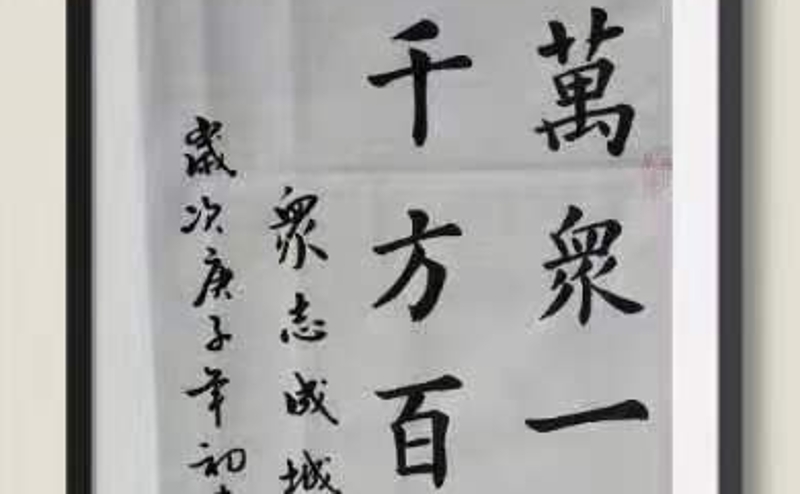 萬衆一
千方百
衆志成城
歲次庚子年初